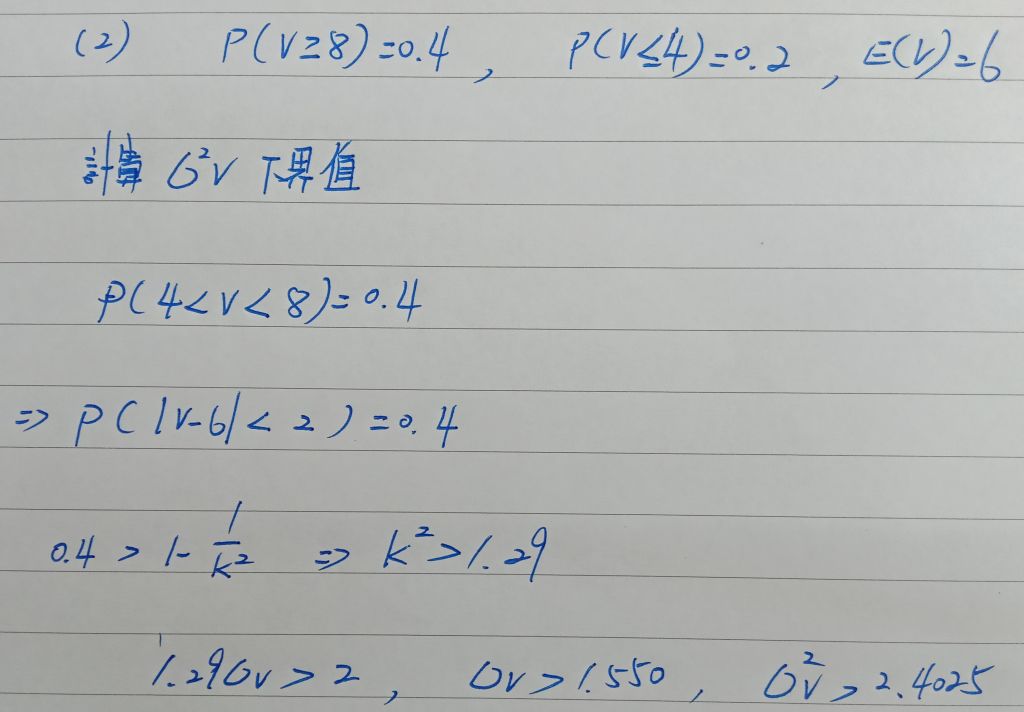 (2) P(V≥8)=0.4 , P(V≤4)=0.2 , E(V)=6
計算 σ²V 下界值
P(4<V<8)=0.4
=> P(|V-6|<2)=0.4
0.4 > 1-1/K² => K²>1.29
1.29σv>2 , σv>1.550 , σ²v>2.4025